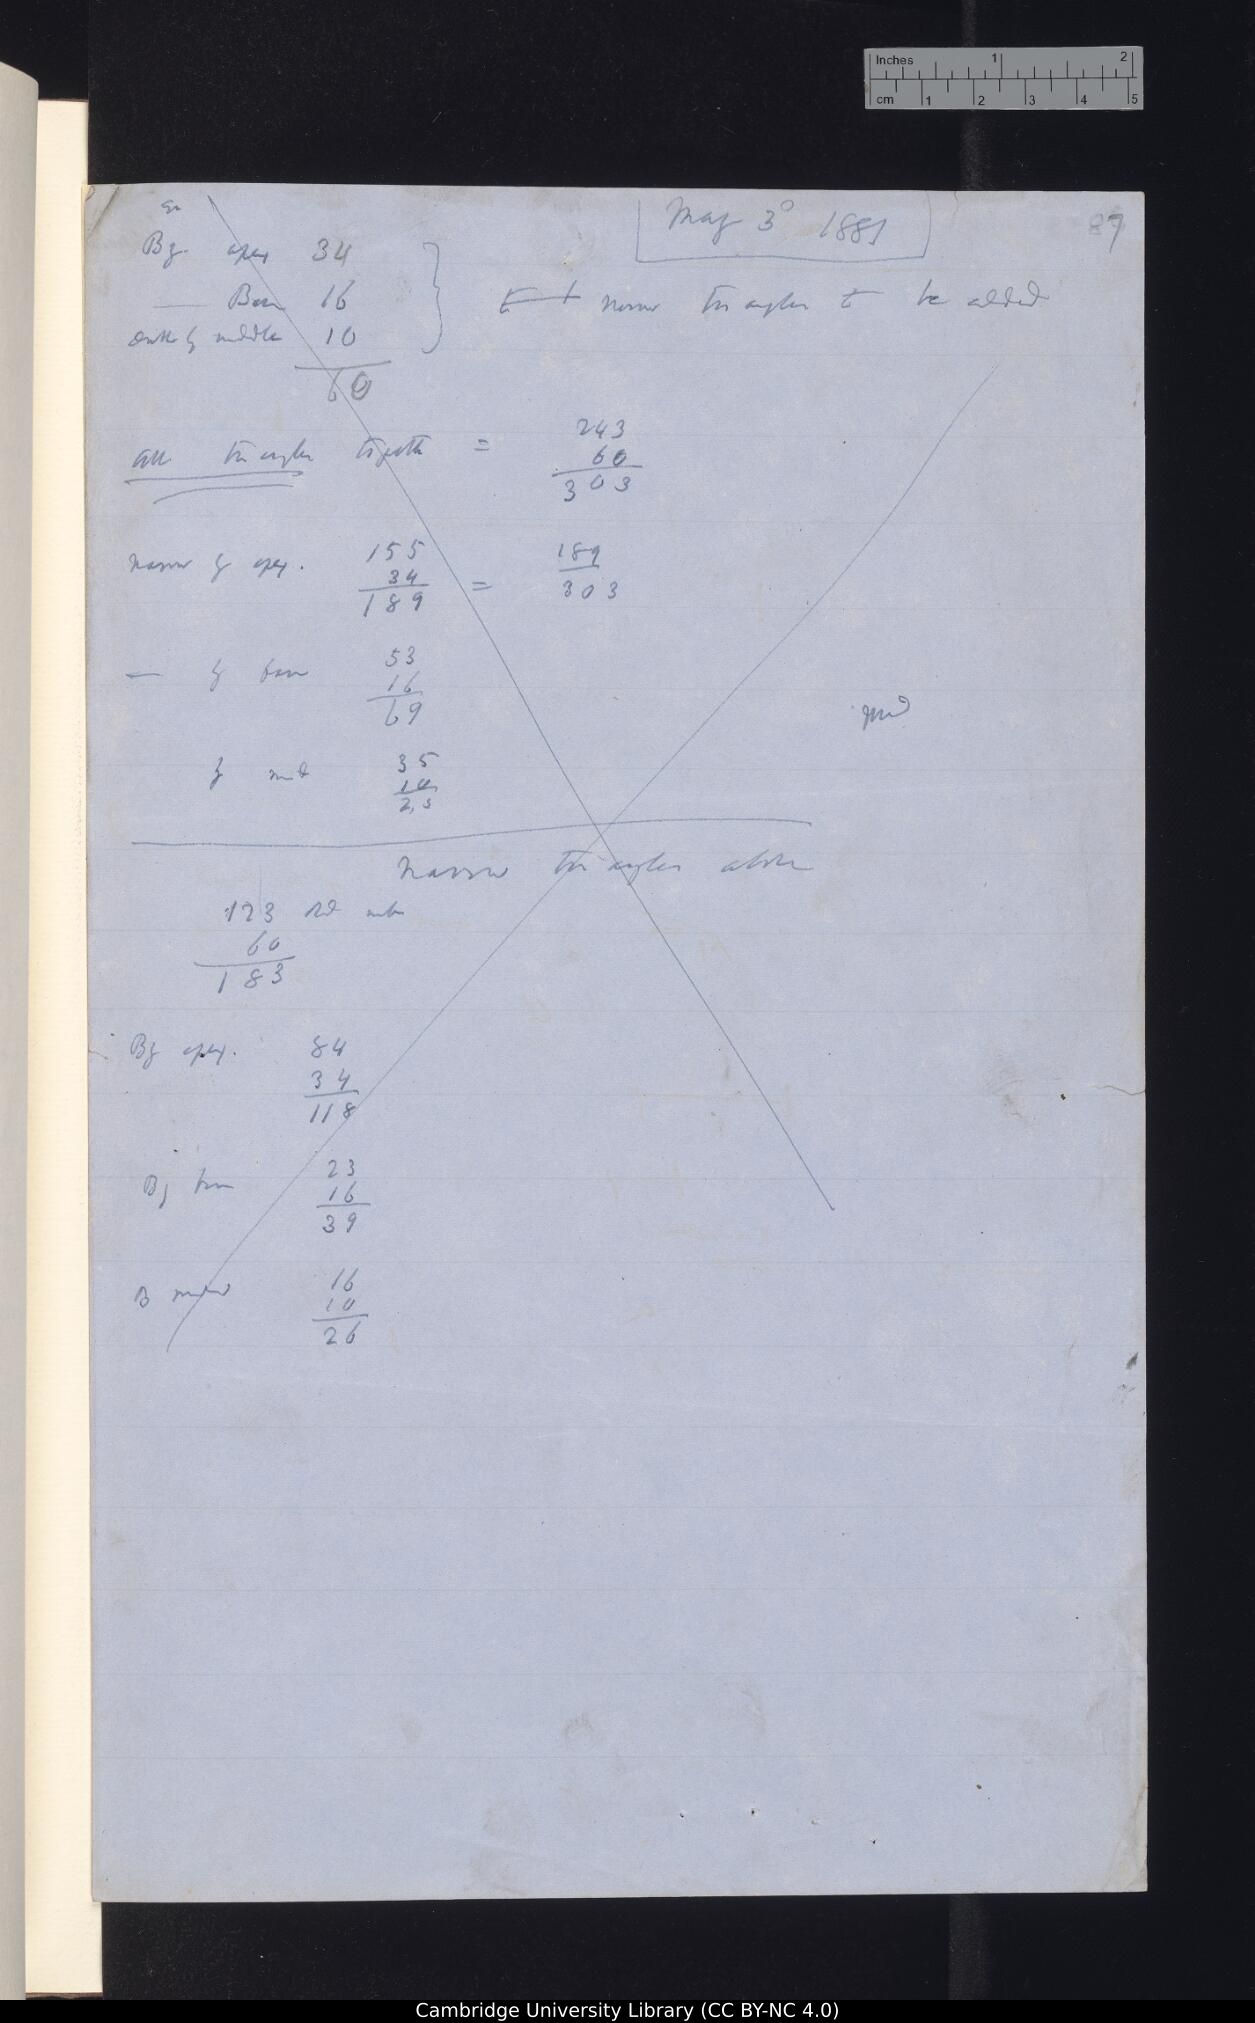 Inches 1 2
cm 1 2 3 4 5
May 3d 1881
87
By apex 34
— Base 16
narrow triangles to be added
by middle 10
60
All triangles together = 243
60
303
Narrow by apex. 155
34
189 = 189
303
— by base 53
16
69
by mid 35
10
Mid
Narrow triangles alone
123 Rd
60
183
By apex. 84
34
118
By base 23
16
39
B middle 16
10
26
Cambridge University Library (CC BY-NC 4.0)